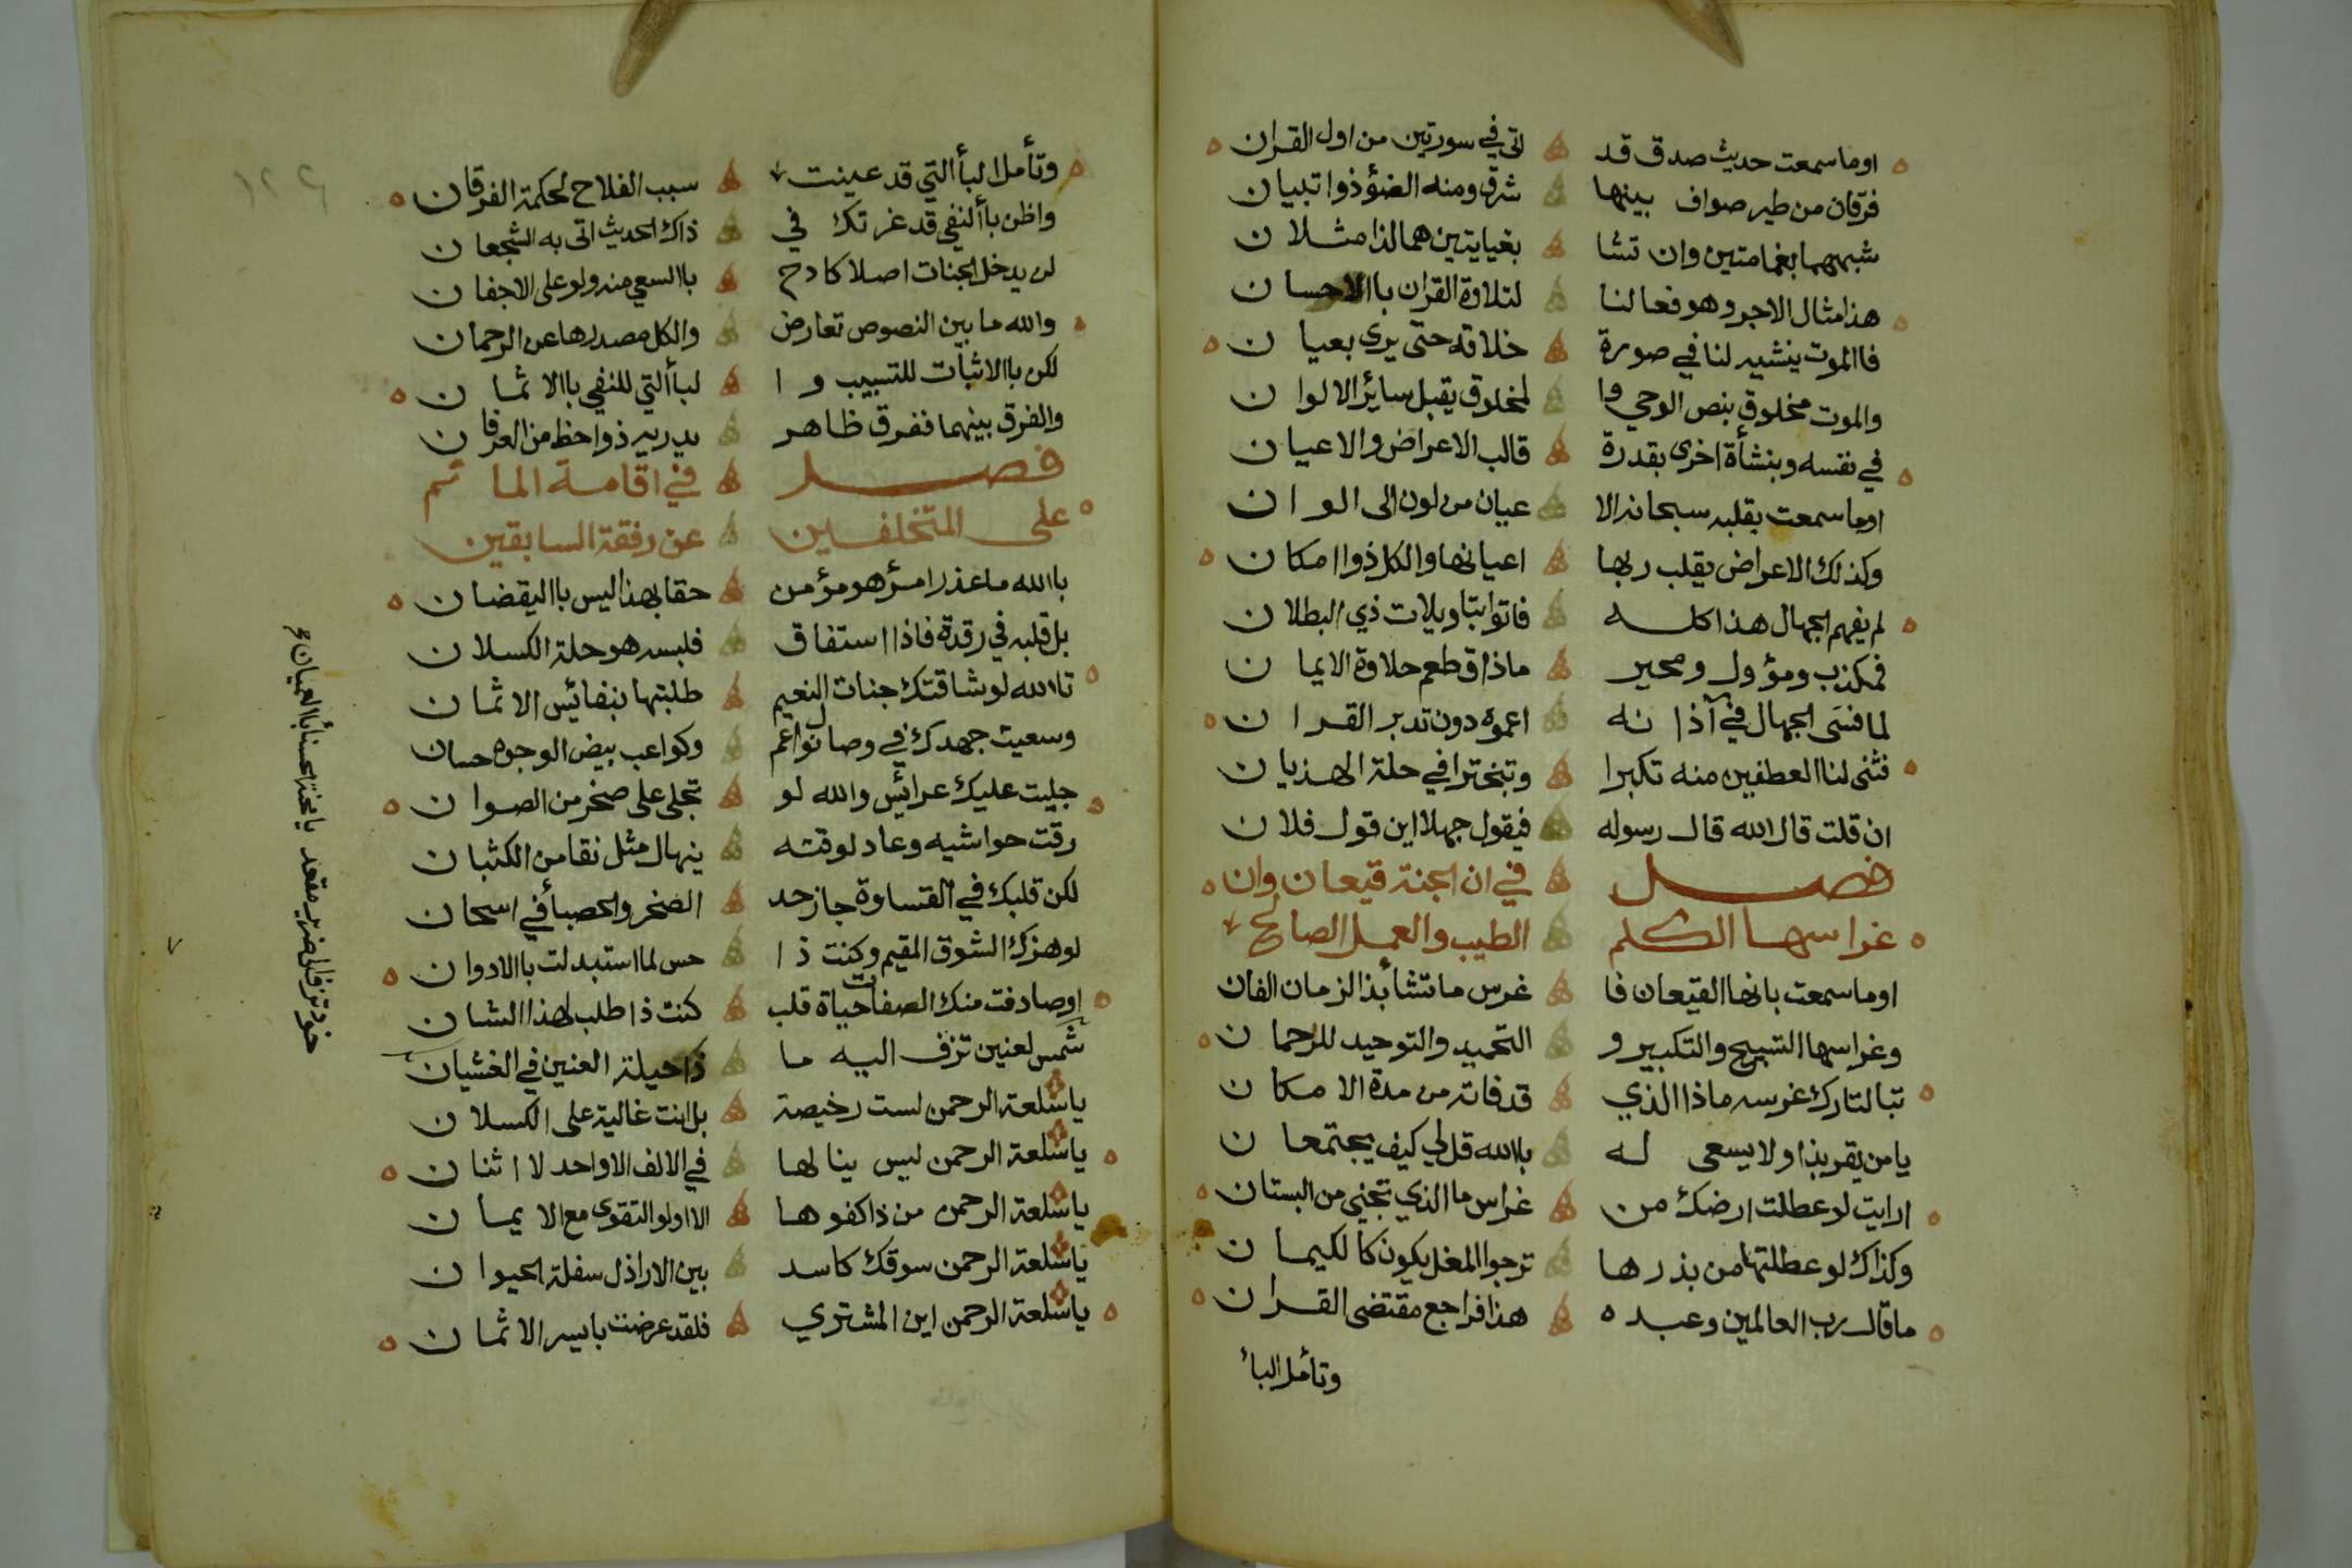 اوما سمعت حديث صدق قد اتى في سورتين من اول القران
فرقان من طير صواف بينها شرق ومنه الضؤ ذوا تبيان
شبههما بغمامتين وان تشا بغيايتين هما لذا مثلان
هذا مثال الاجر وهو فعالنا لتلاوة القران باالاحسان
فاالموت ينشيه لنا في صورة خلاقه حتى يرى بعيان
والموت مخلوق بنص الوحي وا لمخلوق يقبل سائر الالوان
في نفسه وبنشأة اخرى بقدرة قالب الاعراض والاعيان
اوما سمعت بقلبه سبحانه الا عيان من لون الى الوان
وكذلك الاعراض يقلب ربها اعيانها والكل ذوا امكان
لم يفهم الجهال هذا كله فاتوا بتاويلات ذي البطلان
فمكذب ومؤول ومحير ماذاق طعم حلاوة الايمان
لما فسى الجهال في آذانه اعموه دون تدبر القران
فثنى لنا العطفين منه تكبرا وتبخترا في حلة الهذيان
ان قلت قال الله قال رسوله فيقول جهلا اين قول فلان
فصل في ان الجنة قيعان وان
غراسها الكلم الطيب والعمل الصالح
اوما سمعت بانها القيعان فا غرس ما تشا بذا الزمان الفان
وغراسها التسبيح والتكبير و التحميد والتوحيد للرحمان
تبا لتارك غرسه ماذا الذي قد فاته من مدة الامكان
يامن يقر بذا ولا يسعى له باالله قل لي كيف يجتمعان
ارايت لو عطلت ارضك من غراس ما الذي تجني من البستان
وكذاك لو عطلتها من بذرها ترجوا المغل يكون كالكيمان
ما قال رب العالمين وعبده هذا فراجع مقتضى القران
وتأمل البأ
وتأمل البأ التي قد عينت سبب الفلاح لحكمة الفرقان
واظن بأ النفي قد غرتك في ذاك الحديث اتى به الشجعان
لن يدخل الجنات اصلا كادح باالسعي منه ولو على الاجفان
والله ما بين النصوص تعارض والكل مصدرها عن الرحمان
لكن باالاثبات للتسبيب وا لبأ التي للنفي باالاثمان
والفرق بينهما ففرق ظاهر يدريه ذوا حظ من العرفان
فصل في اقامة الماتم
على المتخلفين عن رفقة السابقين
باالله ما عذر امرؤ هو مؤمن حقا بهذا ليس باليقضان
بل قلبه في رقدة فاذا استفاق فلبسه هو حلة الكسلان
تاالله لو شاقتك جنات النعيم طلبتها بنفائس الاثمان
وسعيت جهدك في وصال نواعم وكواعب بيض الوجوه حسان
جليت عليك عرائس والله لو تجلى على صخر من الصوان
رقت حواشيه وعاد لوقته ينهال مثل نقا من الكثبان
لكن قلبك في القساوة جاز حد الصخر والحصبأ في اسحان
لو هزك الشوق المقيم وكنت ذا حس لما استبدلت باالادوان
او صادفت منك الصفات حياة قلب كنت ذا طلب لهذا الشان
شمس لعنين تزف اليه ما ذا حيلة العنين في الغشيان
خود تزف الى ضرير مقعد يا محنة الحسناء بالعميان
يا سلعة الرحمن لست رخيصة بل انت غالية على الكسلان
يا سلعة الرحمن ليس ينالها في الالف الا واحد لا اثنان
يا سلعة الرحمن من ذا كفوها الا اولو التقوى مع الايمان
يا سلعة الرحمن سوقك كاسد بين الاراذل سفلة الحيوان
يا سلعة الرحمن اين المشتري فلقد عرضت بايسر الاثمان